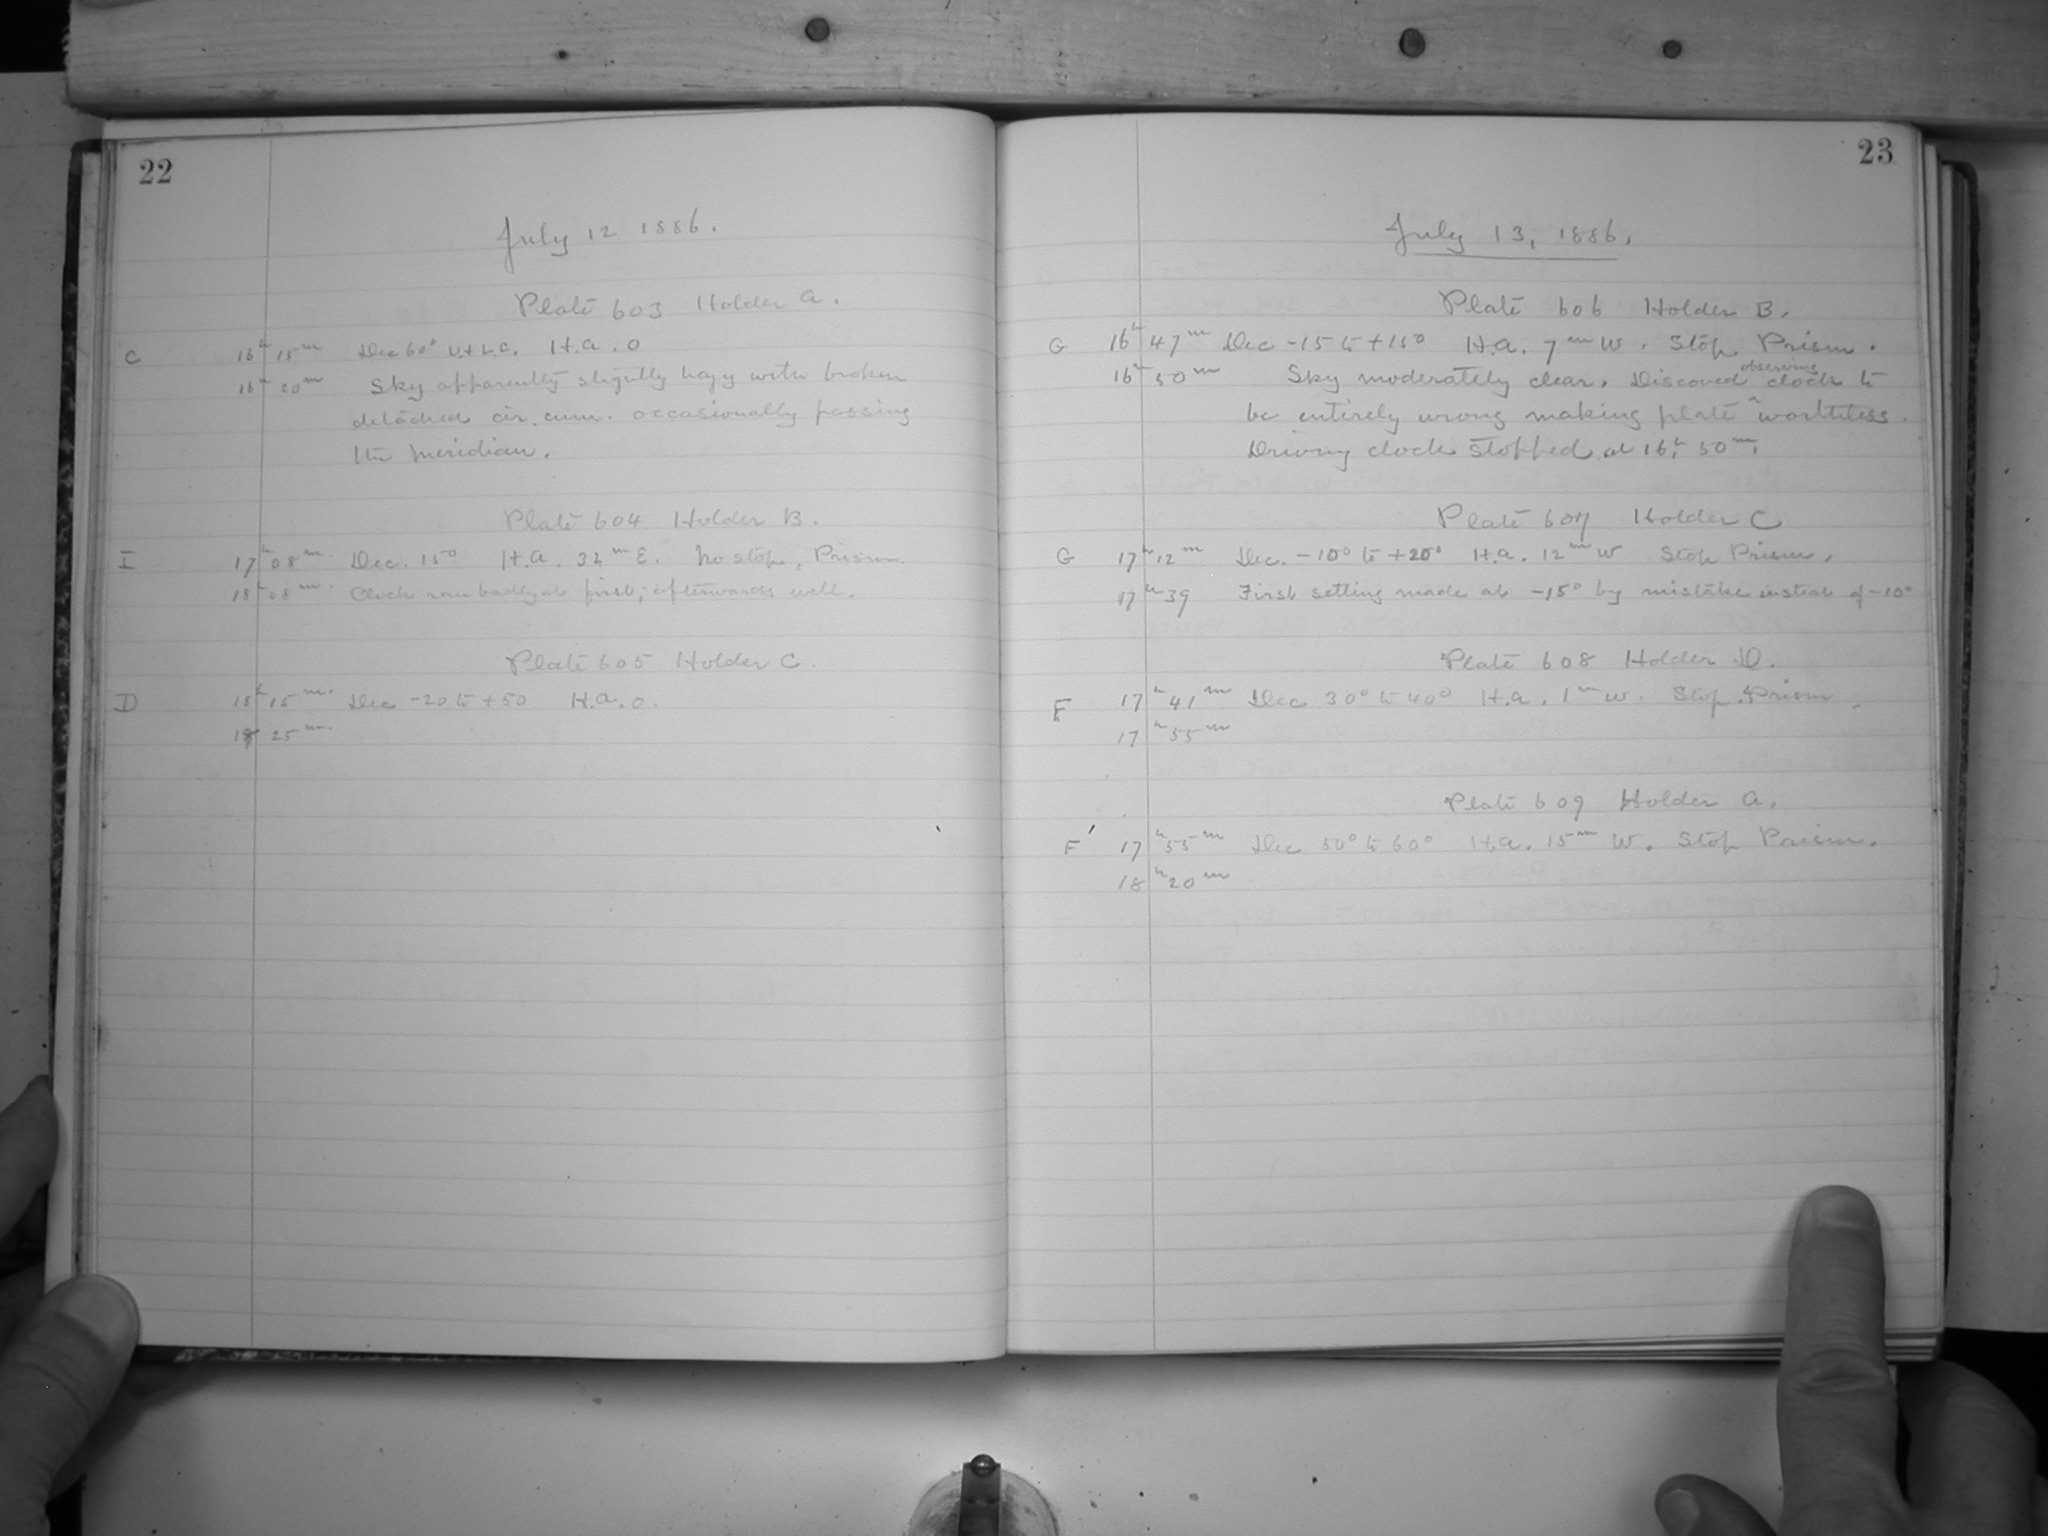 22
July 12 1886.
Plate 603 Holder A.
C 16h 15m Dec 60° U. + L.C. H.A. 0
16h 20m Sky apparently slightly hazy with broken
detached cir. cum. occasionally passing
the meridian.
Plate 604 Holder B.
I 17h 08m Dec. 15° H.A. 32m E. No stop, Prism.
18h 08m. Clock ran badly at first; afterwards well.
Plate 605 Holder C.
D 18h 15m. Dec -20 to +50 H.A. 0.
18 25m.
23
July 13, 1886.
Plate 606 Holder B.
G 16h 47m Dec -15 to +15° H.A. 7m W. Stop Prism.
16h 50m Sky moderately clear. Discovered observing clock to
be entirely wrong making plate worthless.
Driving clock stopped at 16h 50m.
Plate 607 Holder C
G 17h 12m Dec. -10° to +20° H.A. 12m W Stop Prism.
17h 39 First setting made at -15° by mistake instead of -10°
Plate 608 Holder D.
F 17h 41m Dec 30° to 40° H.A. 1m W. Stop. Prism.
17h 55m
Plate 609 Holder A.
F' 17h 55m Dec 50° to 60° H.A. 15m W. Stop Prism.
18h 20m